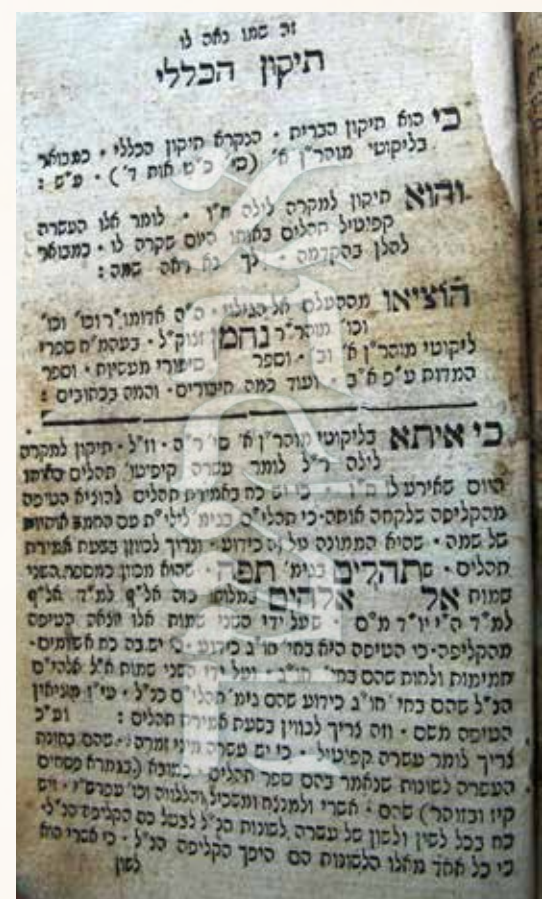 זה שמו נאה לו
תיקון הכללי
כי הוא תיקון הברית · הנקרא תיקון הכללי · כמבואר
בליקוטי מוהר״ן א׳ (סי׳ כ״ט אות ד׳) · ע״ש :
והוא תיקון למקרה לילה ח״ו · לומר אלו העשרה
קפיטיל תהלים באותו היום שקרה לו · כמבואר
להלן בהקדמה · לך נא ראה שמה :
הוציאו מהתעלם אל הגילוי · ה״ה אדומו״ר וכו׳ וכו׳
וכו׳ מוהר״ר נחמן זצוק״ל · בעהמ״ח ספרי
ליקוטי מוהר״ן א׳ וב׳ · וספר סיפורי מעשיות · וספר
המדות ע״פ א״ב · ועוד כמה חיבורים · והמה בכתובים :
כי איתא בליקוטי מוהר״ן א׳ סי׳ ר״ה · וז״ל · תיקון למקרה
לילה ר״ל לומר עשרה קיפיטו׳ תהלים באותו
היום שאירע לו ח״ו · כי יש כח באמירת תהלים להוציא הטיפה
מהקליפה שלקחה אותה · כי תהלי״ם בגימ׳ לילי״ת עם החמש אותיות
של שמה · שהיא הממונה על זה כידוע · וצריך לכוון בשעת אמירת
תהלים · שתהלים בגימ׳ תפה · שהוא מכוון כמספר השני
שמות אל אלהים במלואו כזה אל״ף למ״ד אל״ף
למ״ד ה״י יו״ד מ״ם · שעל ידי השני שמות אלו יוצאה הטיפה
מהקליפה · כי הטיפה היא בחי׳ חו״ג כידוע · כי יש בה כח אשומים ·
חמימות ולחות שהם בחי׳ חו״ג · ועל ידי השני שמות א״ל אלהי״ם
הנ״ל שהם בחי׳ חו״ג כידוע שהם גימ׳ תהלי״ם כנ״ל · עי״ז מוציאין
הטיפה משם · וזה צריך לכווין בשעת אמירת תהלים : וע״כ
צריך לומר עשרה קפיטיל · כי יש עשרה מיני זמרה · שהם בחינת
העשרה לשונות שנאמר בהם ספר תהלים · כמובא (בגמרא פסחים
קיז ובזוהר) שהם · אשרי ולמנצח ומשכיל והללויה וכו׳ עפרש״י · ויש
כח בכל לשון ולשון של עשרה לשונות הנ״ל לבטל כח הקליפה הנ״ל ·
כי כל אחד מאלו הלשונות הם היפך הקליפה הנ״ל · כי אשרי הוא
לשון